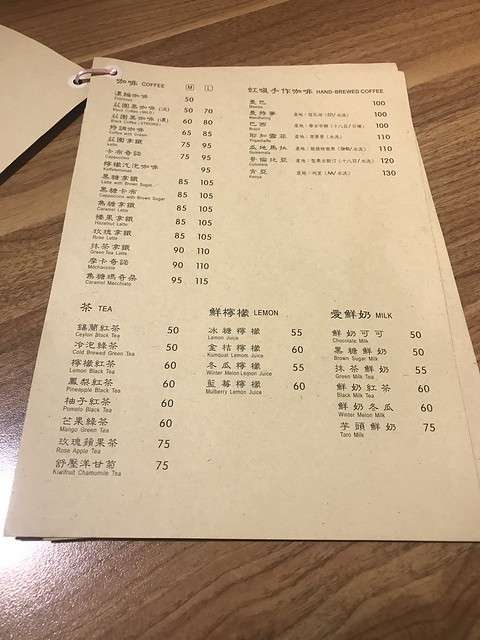 咖啡 COFFEE M L
濃縮咖啡 50
Espresso
莊園黑咖啡(淡) 50 70
Black Coffee (MILD)
莊園黑咖啡(濃) 60 80
Black Coffee (STRONG)
特調咖啡 65 85
Coffee with Cream
莊園拿鐵 75 95
Latte
卡布奇諾 75 95
Cappuccino
檸檬汽泡咖啡 95
黑糖拿鐵 85 105
Latte with Brown Sugar
黑糖卡布 85 105
Cappuccino with Brown Sugar
焦糖拿鐵 85 105
Caramel Latte
榛果拿鐵 85 105
Hazelnut Latte
玫瑰拿鐵 85 105
Rose Latte
抹茶拿鐵 90 110
Green Tea Latte
摩卡奇諾 90 110
Mochaccino
焦糖瑪奇朵 95 115
Caramel Macchiato
虹吸手作咖啡 HAND-BREWED COFFEE
曼巴 100
曼特寧 100
Mandheling
巴西 100
Brazil
耶加雪菲 110
Yirgacheffe
瓜地馬拉 110
Guatemala
哥倫比亞 120
Colombia
肯亞 130
Kenya
茶 TEA
錫蘭紅茶 50
Ceylon Black Tea
冷泡綠茶 50
Cold Brewed Green Tea
檸檬紅茶 60
Lemon Black Tea
鳳梨紅茶 60
Pineapple Black Tea
柚子紅茶 60
Pomelo Black Tea
芒果綠茶 60
Mango Green Tea
玫瑰蘋果茶 75
Rose Apple Tea
舒壓洋甘菊 75
Kiwifruit Chamomile Tea
鮮檸檬 LEMON
冰糖檸檬 55
Lemon Juice
金桔檸檬 60
Kumquat Lemom Juice
冬瓜檸檬 55
Winter Melon Lepon Juice
藍莓檸檬 60
Mulberry Lemon Juice
愛鮮奶 MILK
鮮奶可可 50
Chocolate Milk
黑糖鮮奶 50
Brown Sugar Milk
抹茶鮮奶 55
Green Milk Tea
鮮奶紅茶 60
Black Milk Tea
鮮奶冬瓜 60
Winter Melom Milk
芋頭鮮奶 75
Taro Milk